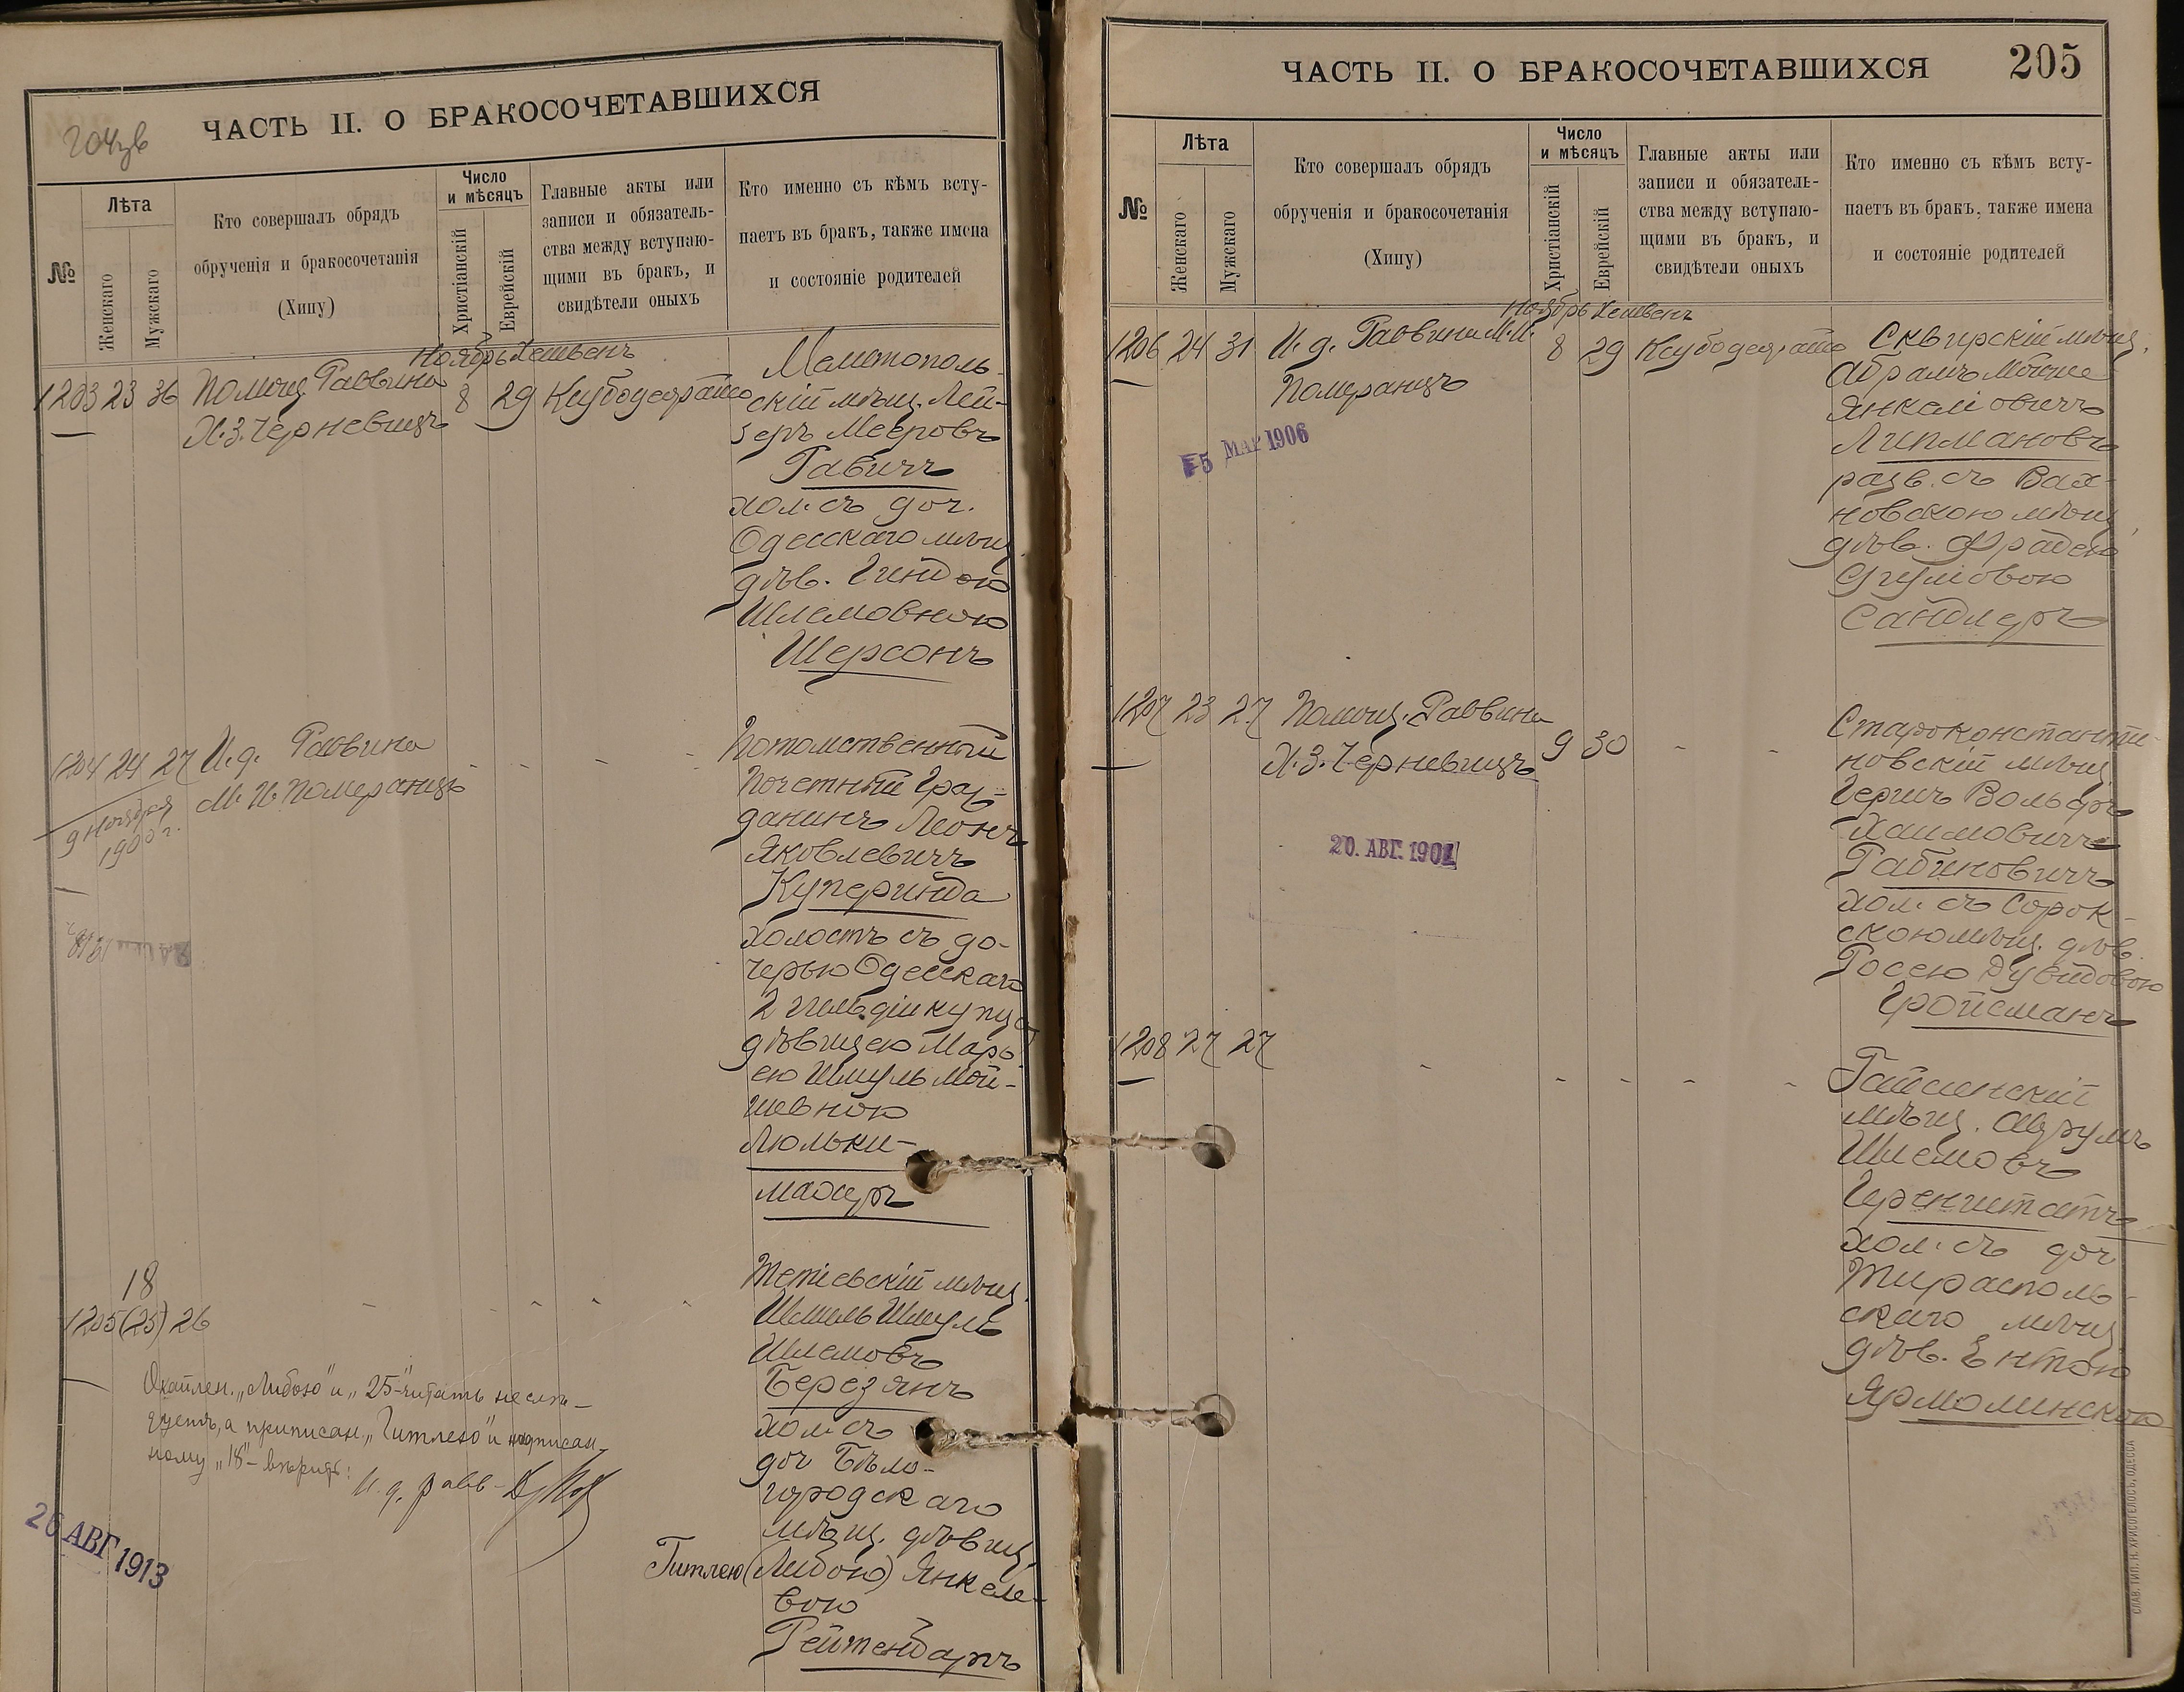 204 об
ЧАСТЬ II. О БРАКОСОЧЕТАВШИХСЯ
№
Лѣта
Женскаго
Мужскаго
Кто совершалъ обрядъ
обрученія и бракосочетанія
(Хипу)
Число
и мѣсяцъ
Христіанскій
Еврейскій
Главные акты или
записи и обязатель-
ства между вступаю-
щими въ бракъ, и
свидѣтели оныхъ
Кто именно съ кѣмъ всту-
паетъ въ бракъ, также имена
и состояніе родителей
Ноябрь Хешвенъ
1203 23 36 Помощ. Раввина 8 29
Х.З. Черневицъ
Мелитополь-
скій мѣщ. Лей-
зеръ Мееровъ
Рабичъ
хол. съ доч.
Одесскаго мѣщ
дѣв. Гиндою
Шлемовною
Шерсонъ
1204 24 27 И.д. Раввина - - - -
М. И. Померанцъ
9 Ноября
1900 г.
Потомственный
Почетный Граж-
данинъ Леонъ
Яковлевичъ
Куперинда
холостъ съ до-
черью Одесскаго
2 гильдіи купца
дѣвицею Марь
ею Шмуль Мой-
шевною
Люльки-
махеръ
18
1205 (25) 26 - - - - -
Тетіевскій мѣщ.
Шмиль Шмуль
Шлемовъ
Березянъ
хол. съ
доч Бѣло-
городскаго
мѣщ. дѣвиц.
Гитлею (Либою) Янкеле-
вою
Рейтенбаргъ
Окаймлен. „Либою" и „25"- читать не слѣ-
дуетъ, а приписан. „Гитлею" и надписан-
ному „18"- вѣрить:
И.д. равв-
26 АВГ 1913
ЧАСТЬ II. О БРАКОСОЧЕТАВШИХСЯ
205
№
Лѣта
Женскаго
Мужскаго
Кто совершалъ обрядъ
обрученія и бракосочетанія
(Хипу)
Число
и мѣсяцъ
Христіанскій
Еврейскій
Главные акты или
записи и обязатель-
ства между вступаю-
щими въ бракъ, и
свидѣтели оныхъ
Кто именно съ кѣмъ всту-
паетъ въ бракъ, также имена
и состояніе родителей
Ноябрь Хешвенъ
1206 24 31 И.д. Раввина М.И. 8 29
Померанцъ
5 МАР 1906
Сквирскій мѣщ.
Абрамъ Мойше
Янкеліовичъ
Липмановъ
разв. съ Вах-
новскою мѣщ.
дѣв. Фрадею
Сруліовою
Сандлеръ
1207 23 27 Помощ. Раввина 9 30 - -
Х.З. Черневицъ
20. АВГ. 1901
Староконстанти-
новскій мѣщ
Гершъ Вольфъ
Хаимовичъ
Рабиновичъ
хол. съ Сорок-
скою мѣщ. дѣв.
Росею Дувидовою
Гройсманъ
1208 27 27 - - - - -
Гайсинскій
мѣщ. Аврумъ
Шлемовъ
Геренштатъ
хол. съ доч
Тирасполь-
скаго мѣщ
дѣв. Ентою
Ярмолинскою
СЛАВ. ТИП. Н. ХРИСОГЕЛОСЪ, ОДЕССА